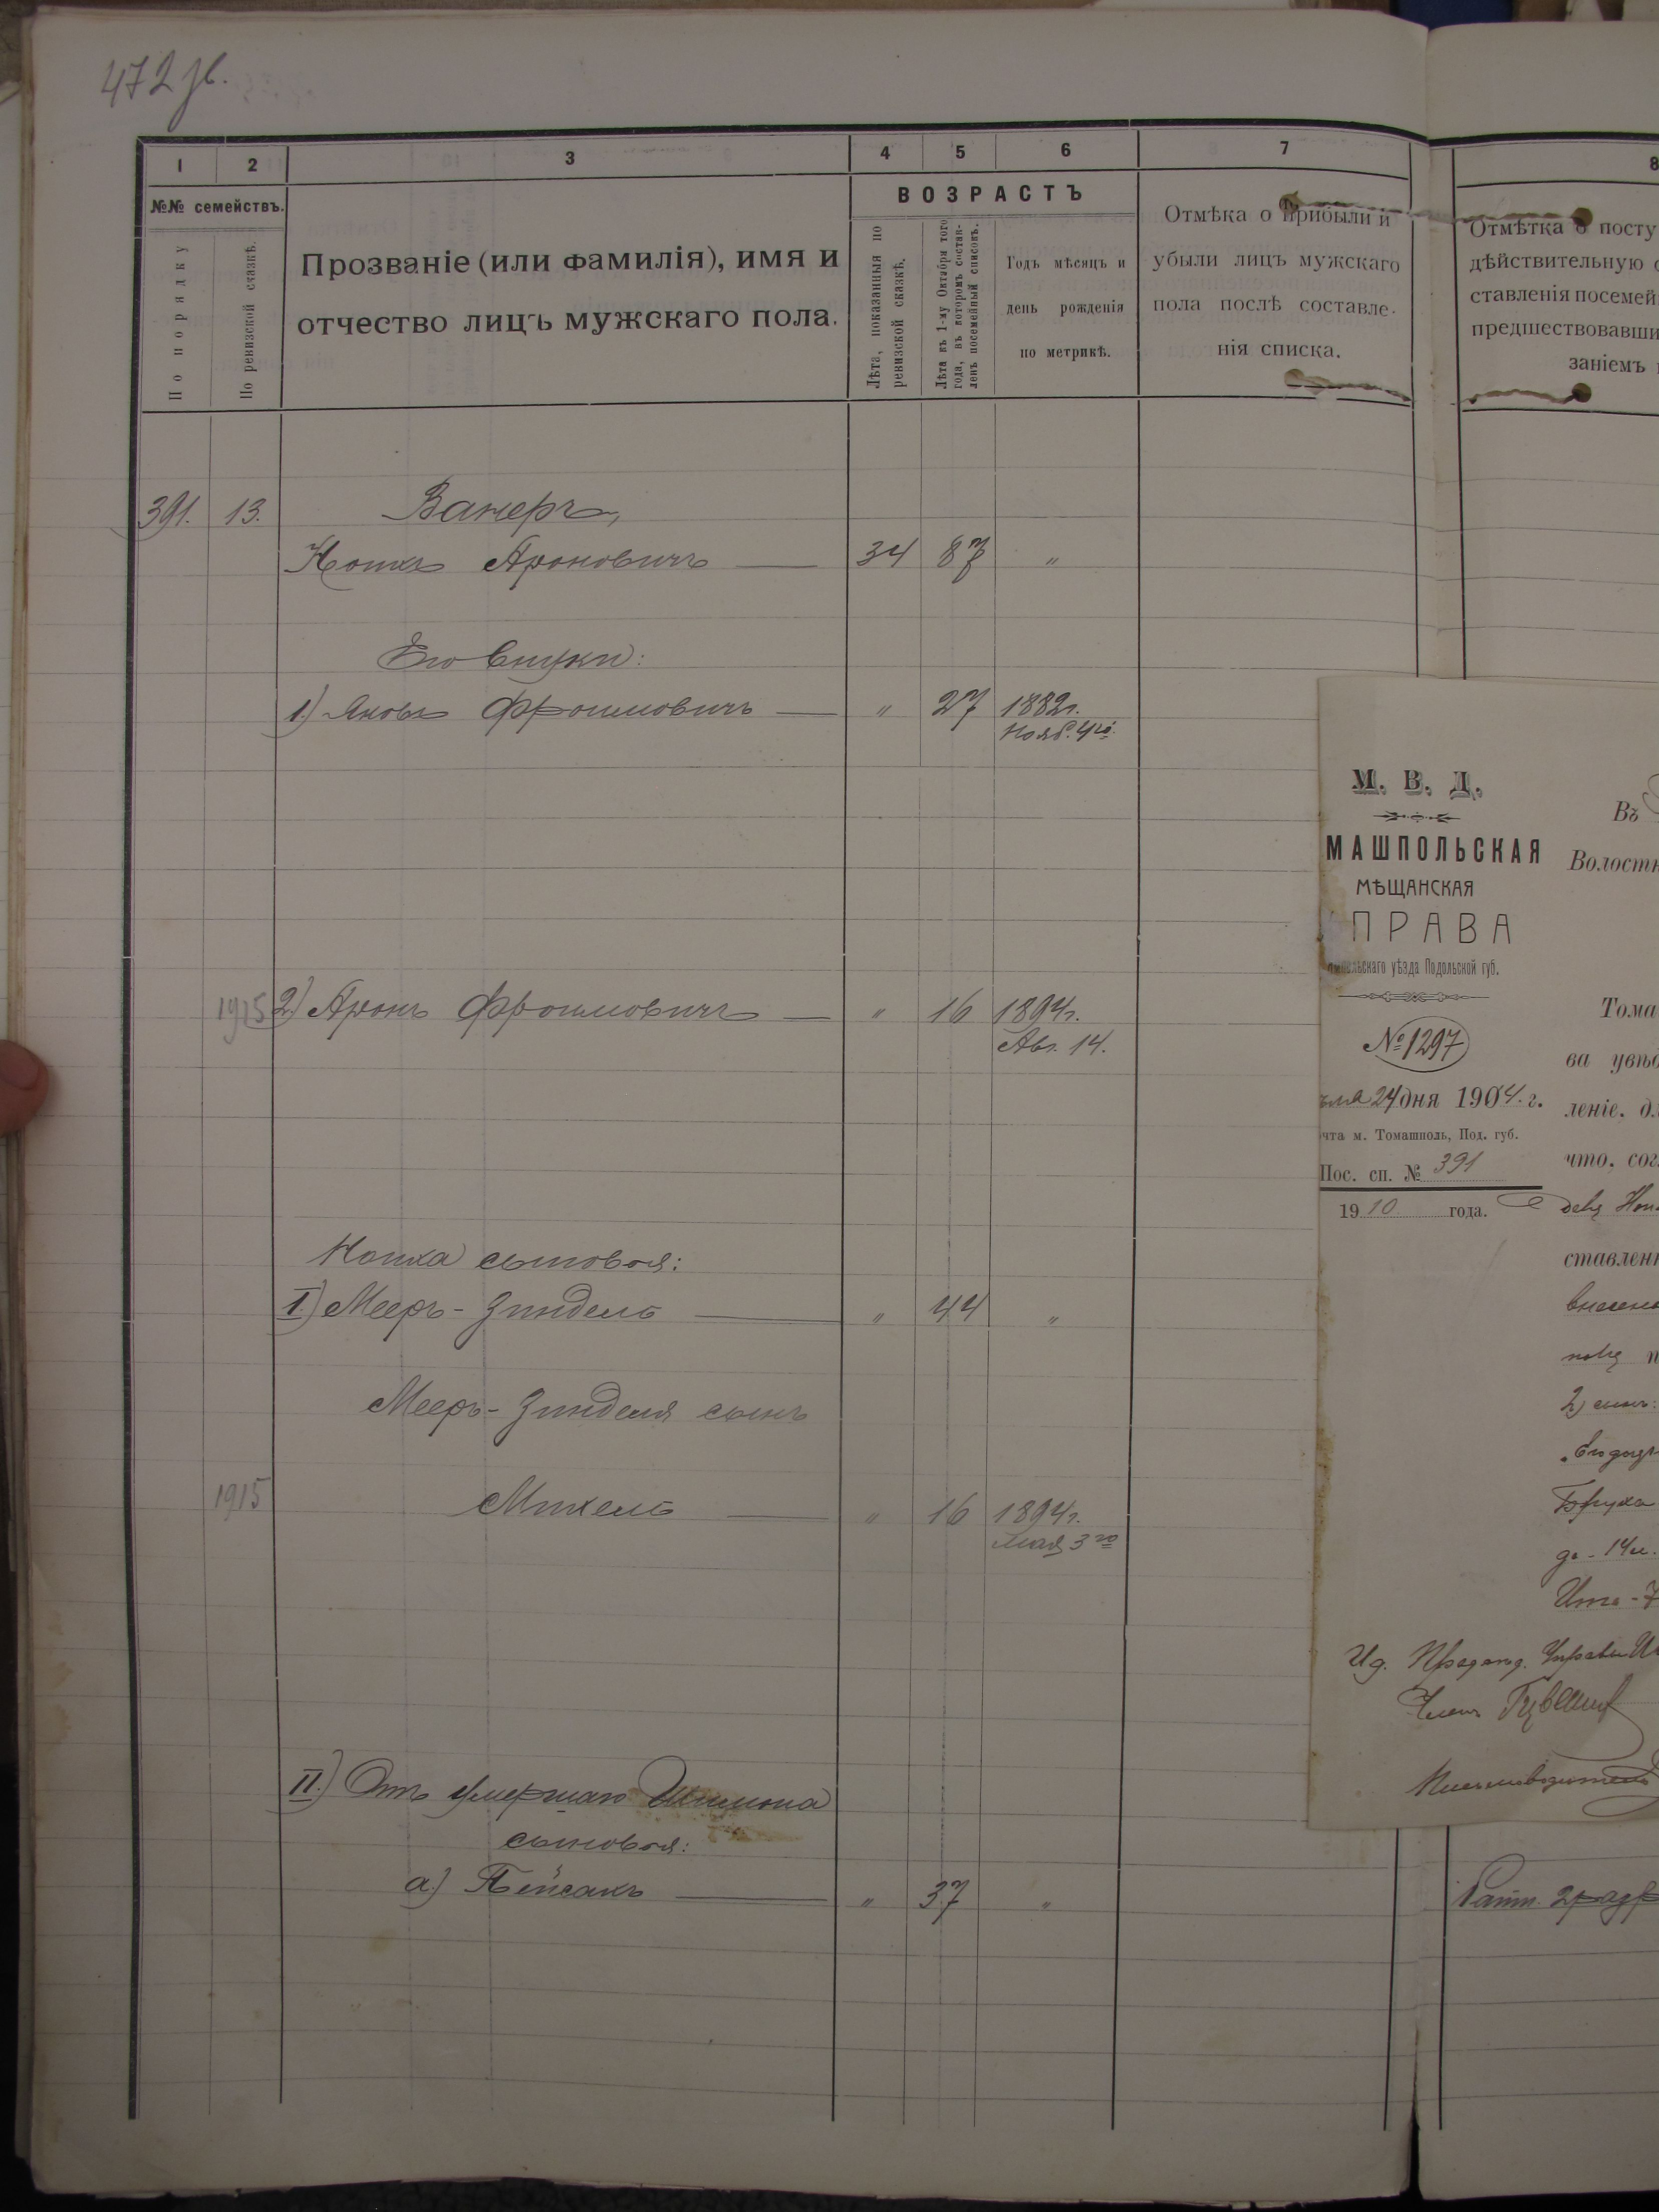 472 зв.
1 2 3 4 5 6 7 8
№№ семействъ.
По порядку
По ревизской сказкѣ.
Прозваніе (или фамилія), имя и
отчество лицъ мужскаго пола.
ВОЗРАСТЪ
Лѣта, показанныя по
ревизской сказкѣ.
Лѣта къ 1-му Октября того
года, въ которомъ состав-
ленъ посемейный списокъ.
Годъ мѣсяцъ и
день рожденія
по метрикѣ.
Отмѣка о прибыли и
убыли лицъ мужскаго
пола послѣ составле-
нія списка.
Отмѣтка о посту
дѣйствительную
ставленія посемей
предшествовавши
заніемъ
391. 13. Ванеръ,
Нотка Ароновичъ 34 87 "
Его внуки:
1.) Яковъ Фроимовичъ " 27 1882г.
Нояб. 4го.
1915 2) Аронъ Фроимовичъ " 16 1894г.
Авг. 14.
сыновья:
I.) Мееръ-Зиндель " 44 "
Мееръ-Зинделя сынъ
1915 Михель " 16 1894г.
Мая 3го
II.) Отъ умершаго Шимона
сыновья:
а) Пейсахъ " 37 "
М. В. Д.
МАШПОЛЬСКАЯ
МѢЩАНСКАЯ
ПРАВА
льскаго уѣзда Подольской губ.
№ 1297
24 дня 1904. г.
чта м. Томашполь, Под. губ.
Пос. сп. № 391
1910 года.
Въ
Волостн
Тома
ва увѣд
леніе. дл
что, сог
ставлен
2) сынъ:
Бруха
Ита - 7
Членъ